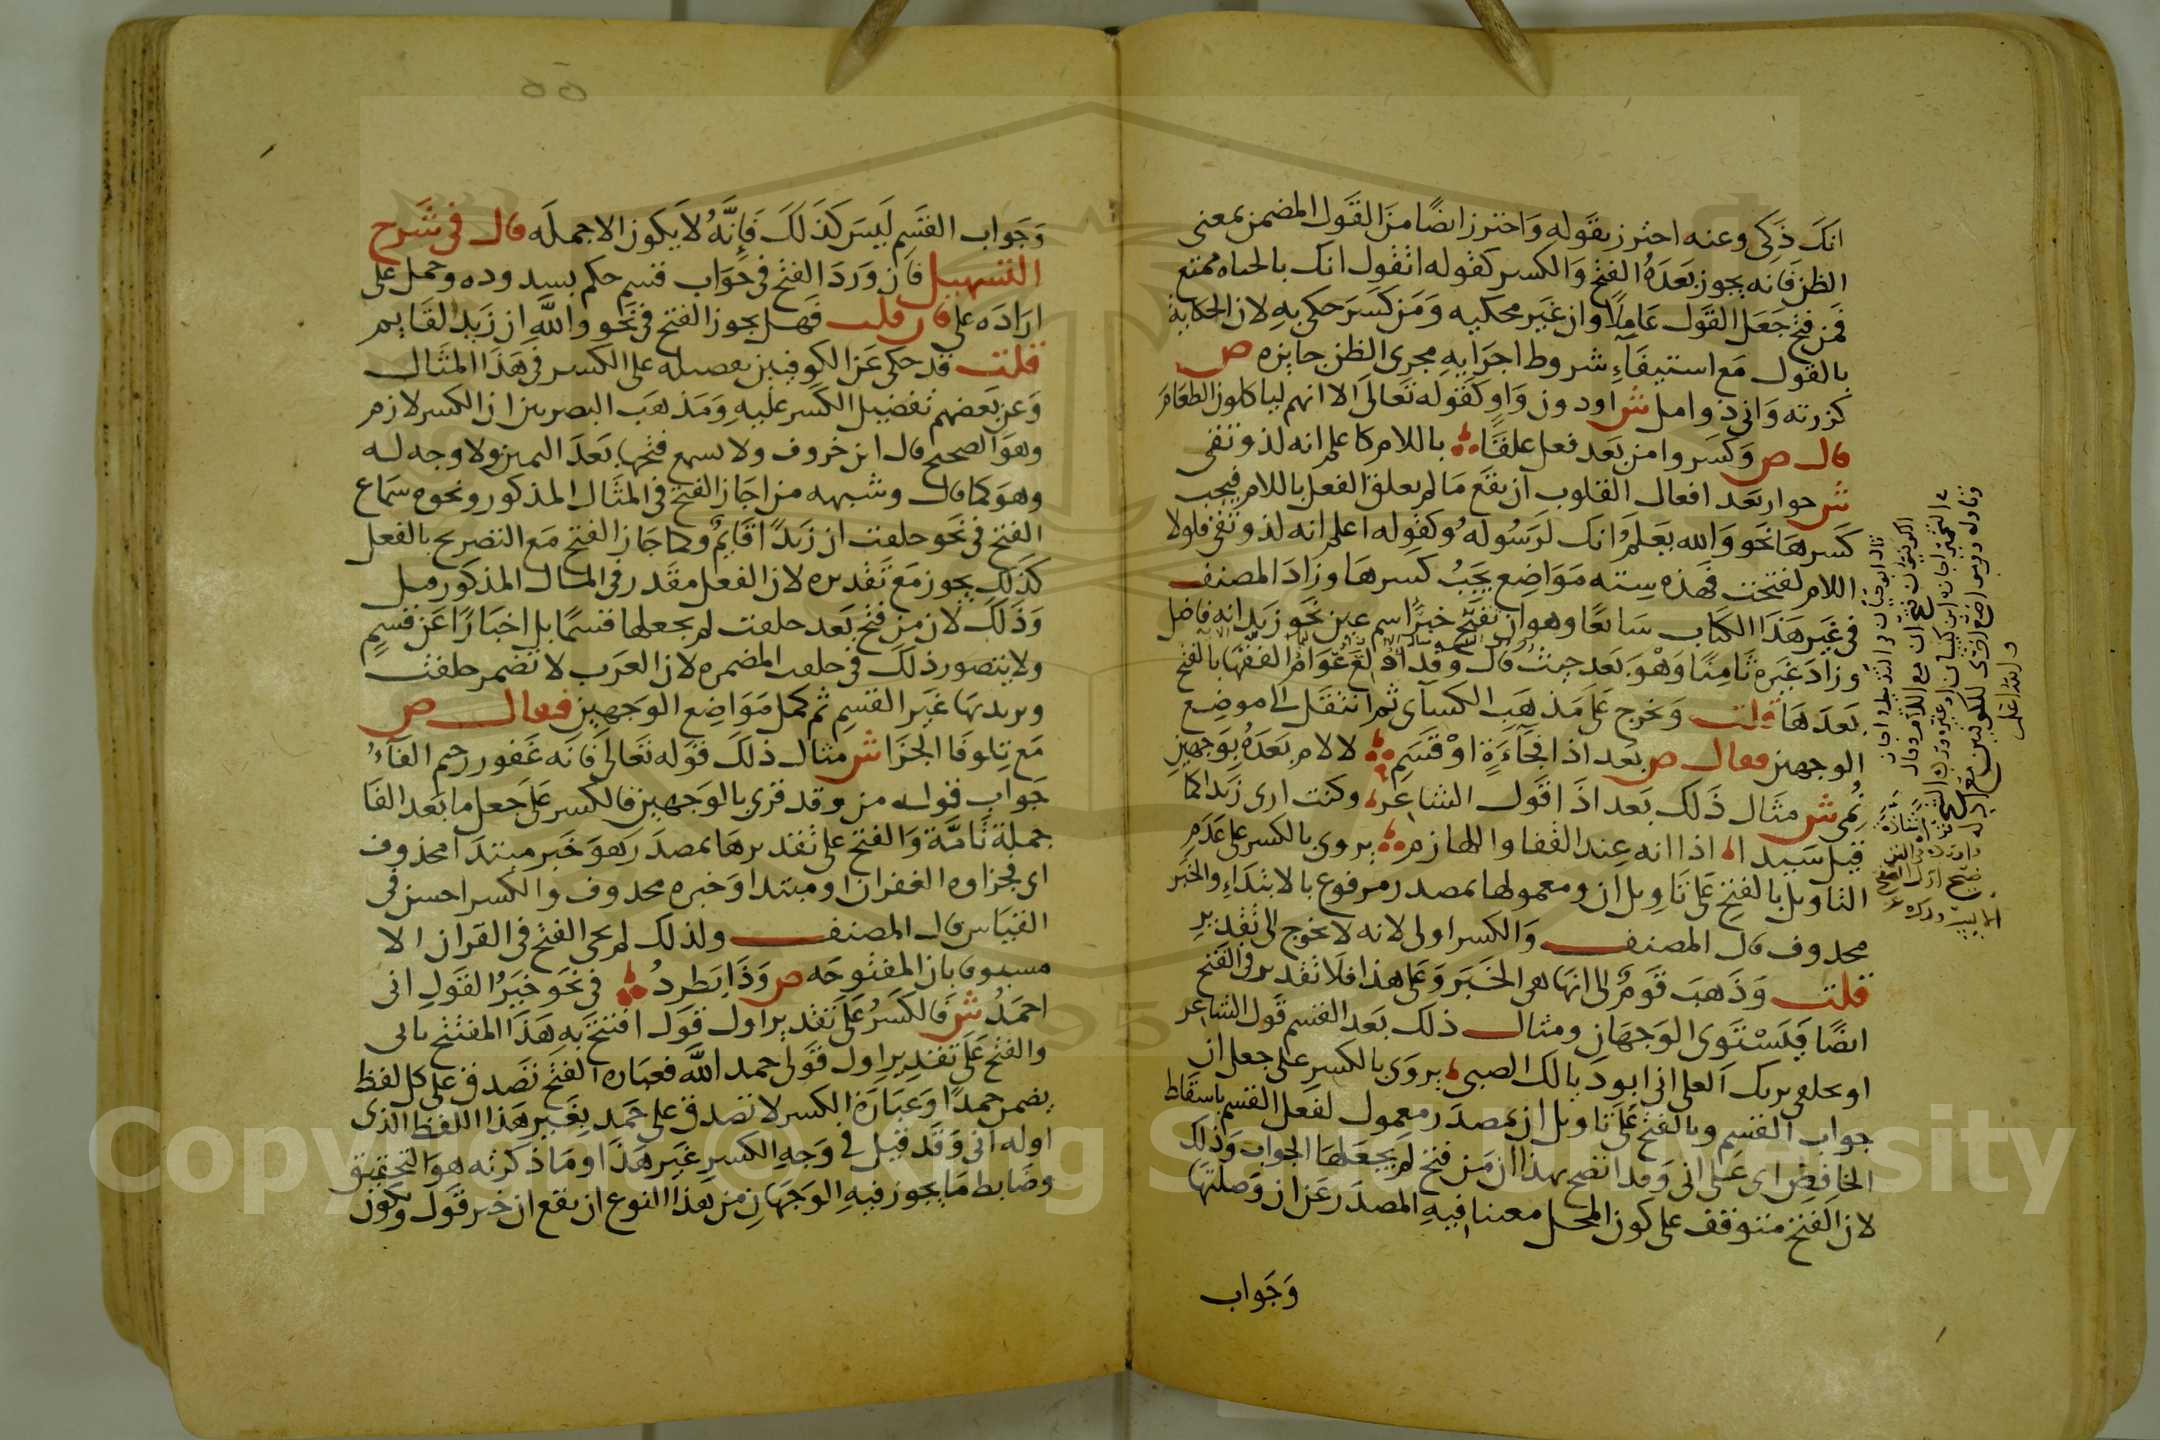 انك ذكى وعنه احترز بقوله واحترز ايضا من القول المضمن بمعنى
الظن فانه يجوز بعده الفتح والكسر كقوله اتقول انك بالحياه ممتع
فمن فتح جعل القول عاملا وان غير محكى به ومن كسر حكى به لان الحكاية
بالقول مع استيفاء شروط اجرايه مجرى الظن جايزه ص
كزرته وانى ذو امل ش او دون واو كقوله تعالى الا انهم لياكلون الطعام
قال ص وكسروا من بعد فعل علقا باللام كاعلم انه لذو تقى
ش حوار بعد افعال القلوب ان يقع ما لم يعلق الفعل باللام فيجب
كسرها نحو والله يعلم انك لرسوله وكقوله اعلم انه لذو تقى فلولا
اللام لفتحت فهذه سته مواضع يجب كسرها وزاد المصنف
فى غير هذا الكتاب سابعا وهو ان تفتح خبر اسم عين نحو زيد انه فاضل
وزاد غيره ثامنا وهو بعد حيث قال وقد اولع عوام الفقها بالفتح
بعدها قلت وتخرج على مذهب الكساى ثم انتقل الى موضع
الوجهين فقال ص بعد اذا فجاءة او قسم لا لام بعده بوجهين
نمى ش مثال ذلك بعد اذا قول الشاعر وكنت ارى زيدا كما
قيل سيدا اذا انه عند القفا واللهازم يروى بالكسر على عدم
التاويل بالفتح على تاويل ان ومعمولها بمصدر مرفوع بالابتداء والخبر
محدوف قال المصنف والكسر اولى لانه لا يحوج الى تقدير
قلت وذهب قوم الى انها هى الخبر وعلى هذا فلا تقدير فى الفتح
ايضا فيستوى الوجهان ومثال ذلك بعد القسم قول الشاعر
او تحلفى بربك العلى انى ابو ذيالك الصبى يروى بالكسر على جعل ان
جواب القسم وبالفتح على تاويل ان بمصدر معمول لفعل القسم باسقاط
الخافض اى على انى وقد اتضح بهذا ان من فتح لم يجعلها الجواب وذلك
لان الفتح متوقف على كون المحل معنا فيه المصدر عن ان وصلتها
وجواب
وجواب القسم ليس كذلك فانه لا يكون الا جمله قال فى شرح
التسهيل فان ورد الفتح فى جواب قسم حكم بسدوده وحمل على
اراده على فان قلت فهل يجوز الفتح فى نحو والله ان زيد القايم
قلت قد حكى عن الكوفيين تفضيله على الكسر فى هذا المثال
وعن بعضهم تفضيل الكسر عليه ومذهب البصريين ان الكسر لازم
وهو الصحيح قال ابن خروف ولا يسمع فتحها بعد اليمين ولا وجه له
وهو كما قال وشبهه من اجاز الفتح فى المثال المذكور ونحوه سماع
الفتح فى نحو حلفت ان زيدا قايم وكما جاز الفتح مع التصريح بالفعل
كذلك يجوز مع تقديره لان الفعل مقدر فى المثال المذكور قيل
وذلك لان من فتح بعد حلفت لم يجعلها قسما بل اخبارا عن قسم
ولا يتصور ذلك فى حلفت المضمره لان العرب لا تضمر حلفت
وتريد بها غير القسم ثم كمل مواضع الوجهين فقال ص
مع تلو فا الجزا ش مثال ذلك قوله تعالى فانه غفور رحيم الفاء
جواب قوله من وقد قرى بالوجهين فالكسر على جعل ما بعد الفا
جملة تامة والفتح على تقديرها بمصدر هو خبر مبتدا محذوف
اى فجزاوه الغفران او مبتدا وخبره محدوف والكسر احسن فى
القياس قال المصنف ولذلك لم يجى الفتح فى القران الا
مسبوق بان المفتوحه ص وذا يطرد فى نحو خير القول انى
احمد ش فالكسر على تقدير اول قول افتتح به هذا المفتتح بانى
والفتح على تقدير اول قولى احمد الله فعباره الفتح تصدق على كل لفظ
يضمن حمدا وعبارة الكسر لا تصدق على حمد بغير هذا اللفظ الذى
اوله انى وقد قيل فى وجه الكسر غير هذا وما ذكرته هو التحقيق
وضابط ما يجوز فيه الوجهان من هذا النوع ان تقع ان خبر قول ويكون